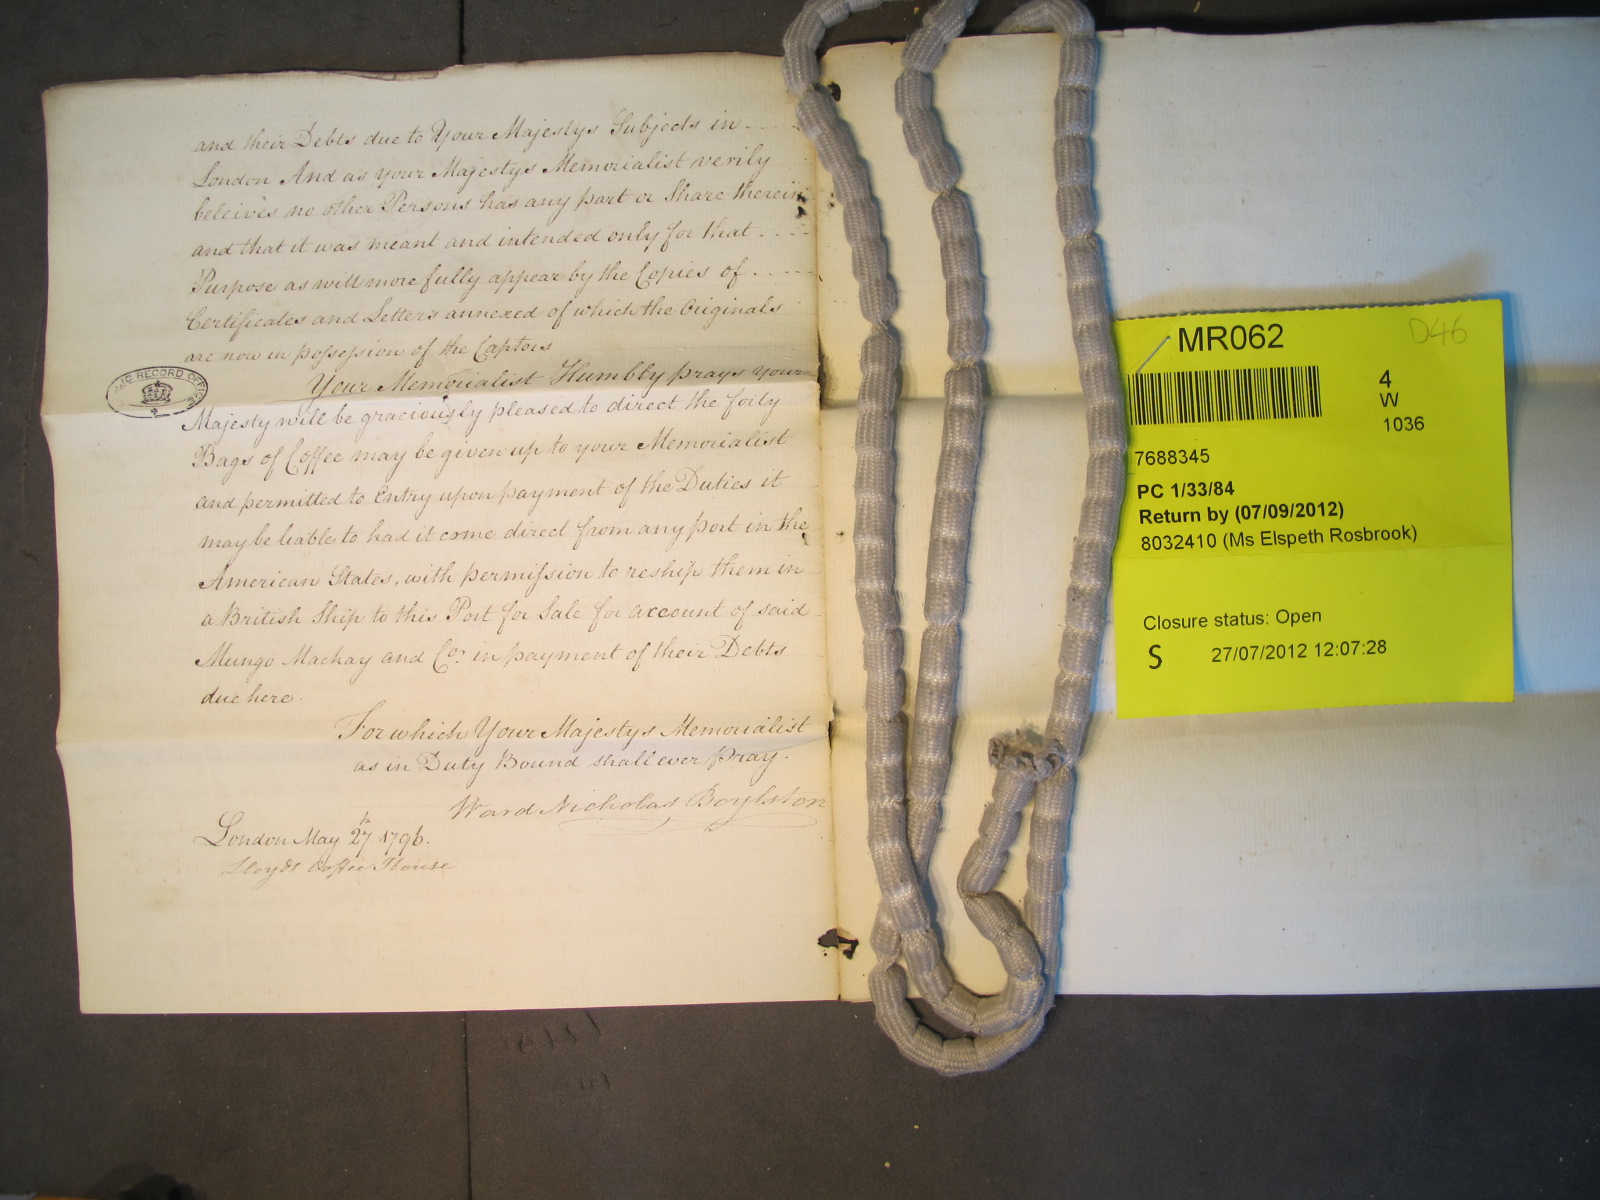 and their Debts due to Your Majestys Subjects in
London And as your Majestys Memorialist verily
beleives no other Persons has any part or Share therein
and that it was meant and intended only for that
Purpose as will more fully appear by the Copies of
Certificates and Letters annexed of which the Originals
are now in possession of the Captors
Your Memorialist Humbly prays your
Majesty will be graciously pleased to direct the forty
Bags of Coffee may be given up to your Memorialist
and permitted to Entry upon payment of the Duties it
may be liable to had it come direct from any port in the
American States, with permission to reship them in
a British Ship to this Port for Sale for account of said
Mungo Mackay and Co. in payment of their Debts
due here.
For which Your Majestys Memorialist
as in Duty Bound shall ever Pray.
Ward Nicholas Boylston
London May 27th 1796.
Lloyds Coffee House
RECORD OFFICE
MR062
D46
4
W
1036
7688345
PC 1/33/84
Return by (07/09/2012)
8032410 (Ms Elspeth Rosbrook)
Closure status: Open
S 27/07/2012 12:07:28